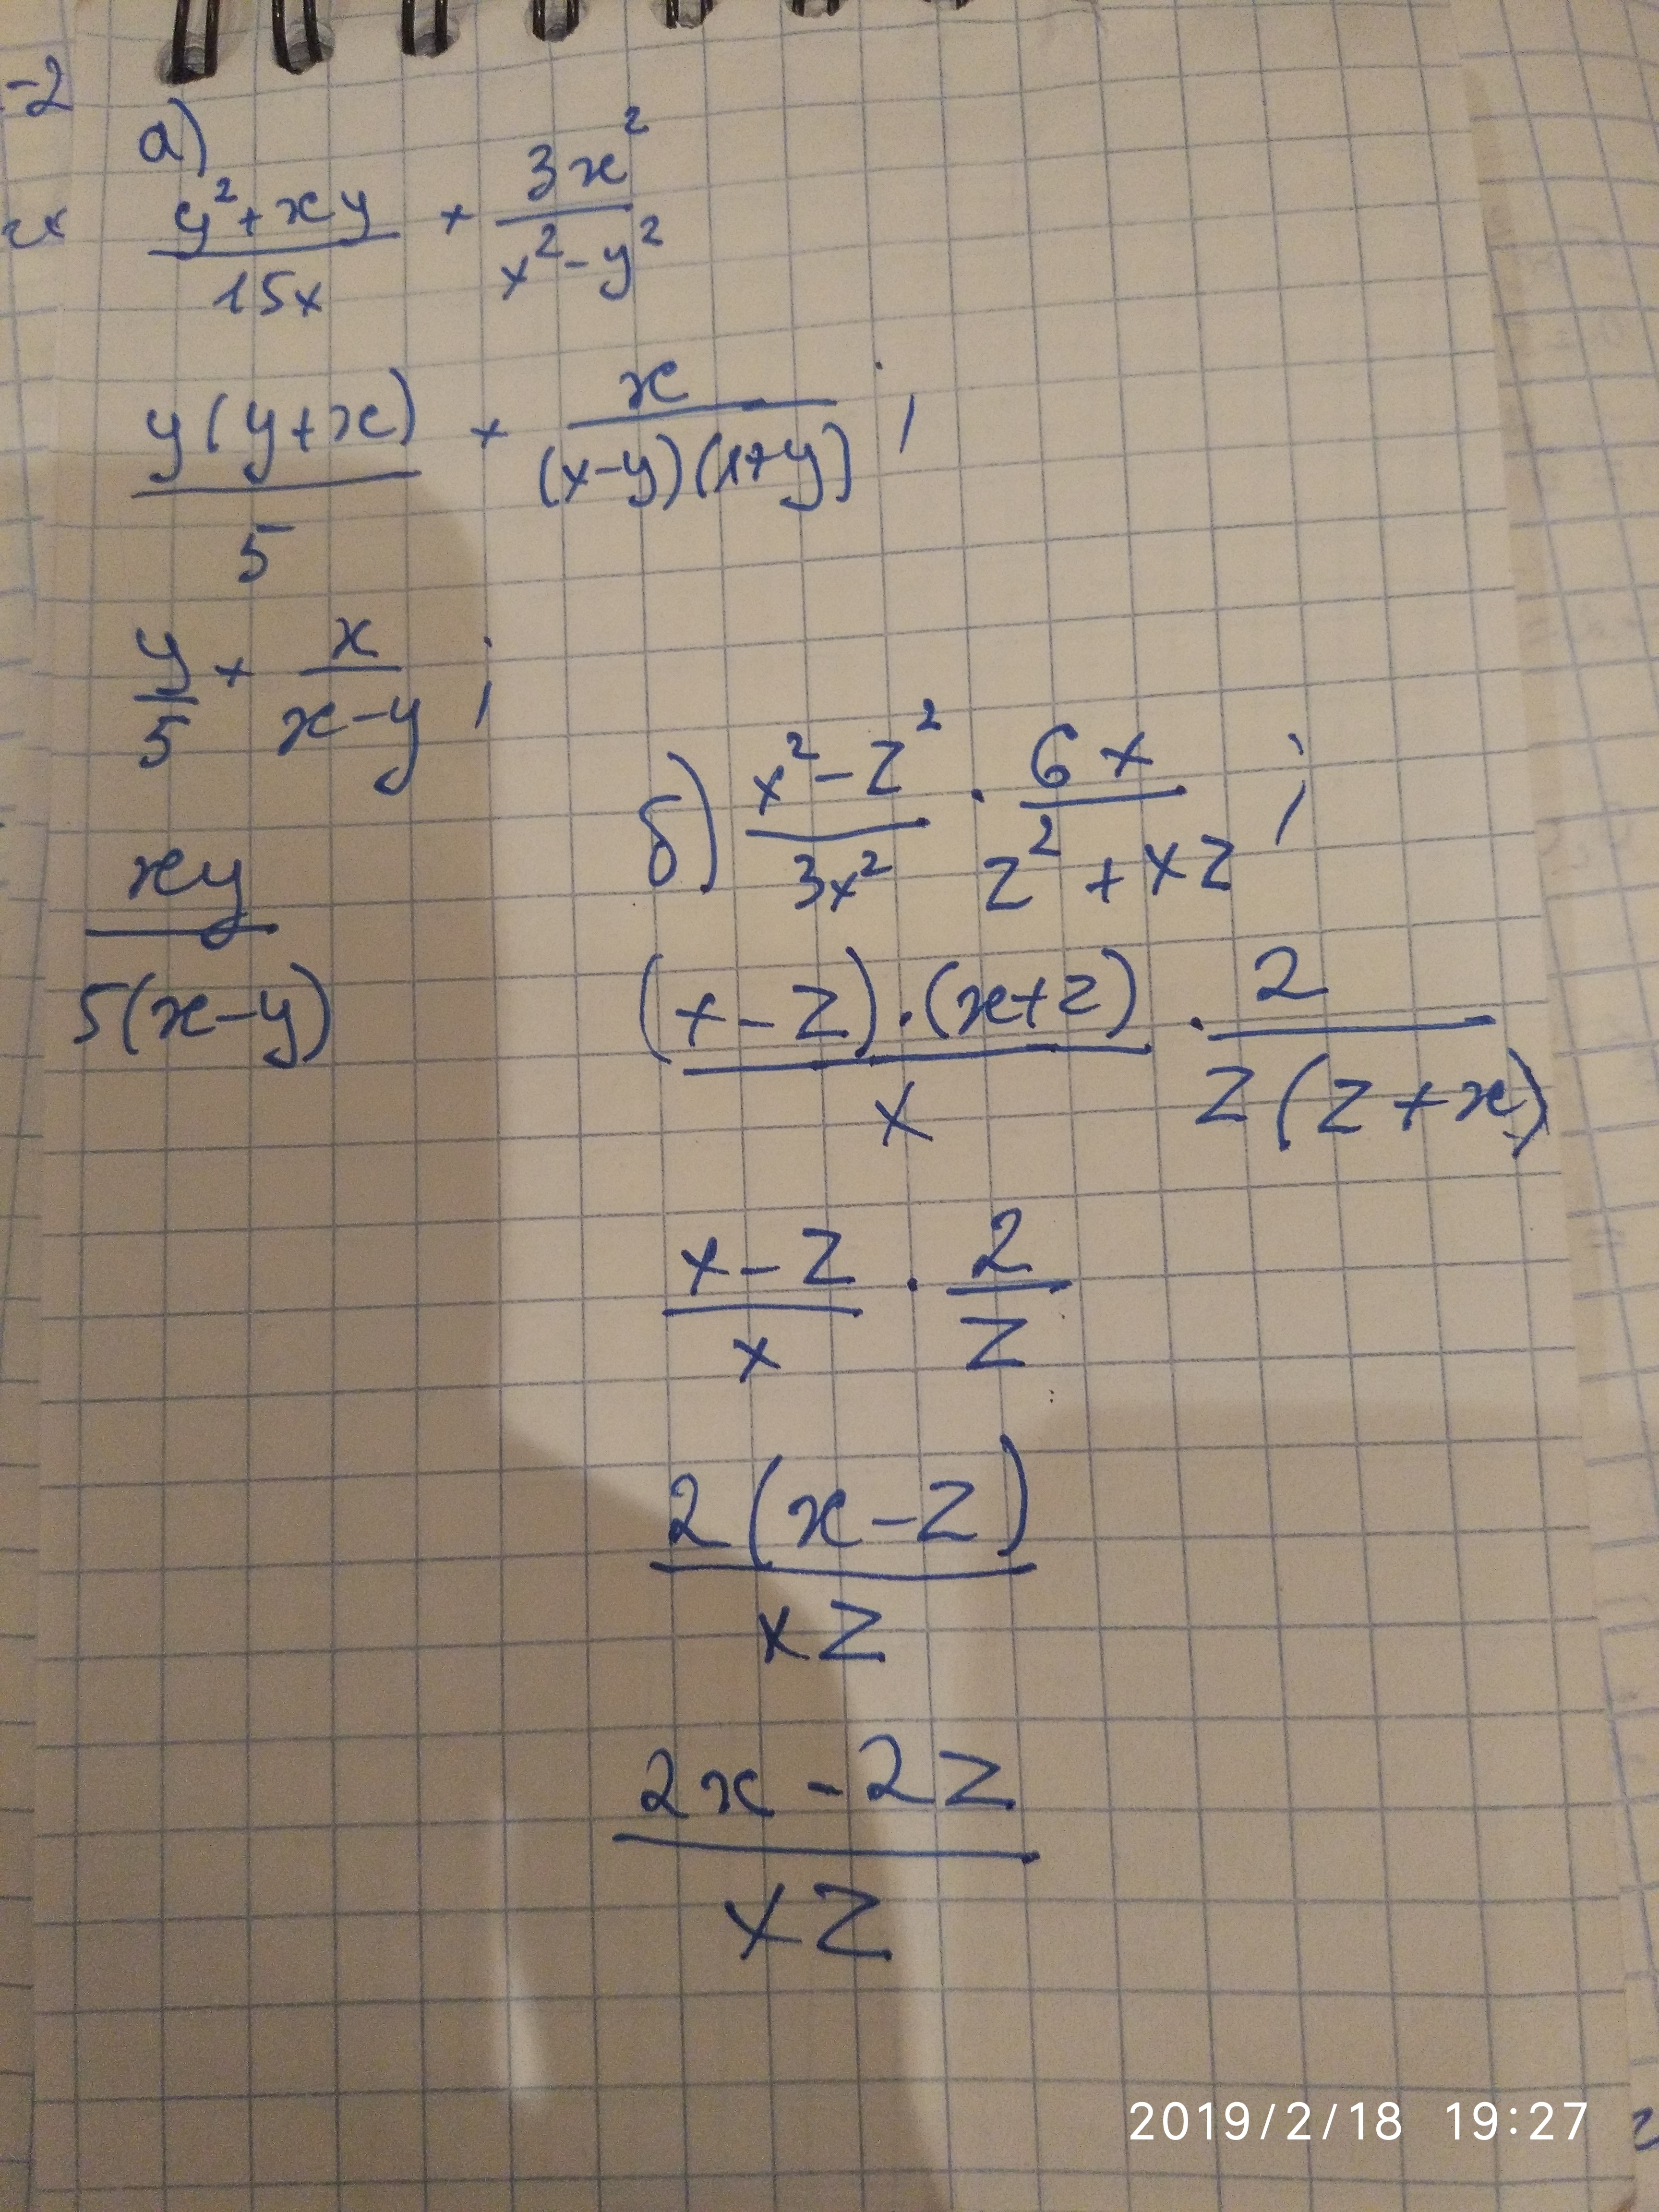 -2
а)
(y²+xy)/(15x) × (3x²)/(x²-y²)
(y(y+x))/5 × x/((x-y)(x+y)) ;
y/5 × x/(x-y) ;
xy/(5(x-y))
б) (x²-z²)/(3x²) · (6x)/(z²+xz) ;
((x-z)·(x+z))/x · 2/(z(z+x))
(x-z)/x · 2/z
(2(x-z))/(xz)
(2x-2z)/(xz)
2019/2/18 19:27